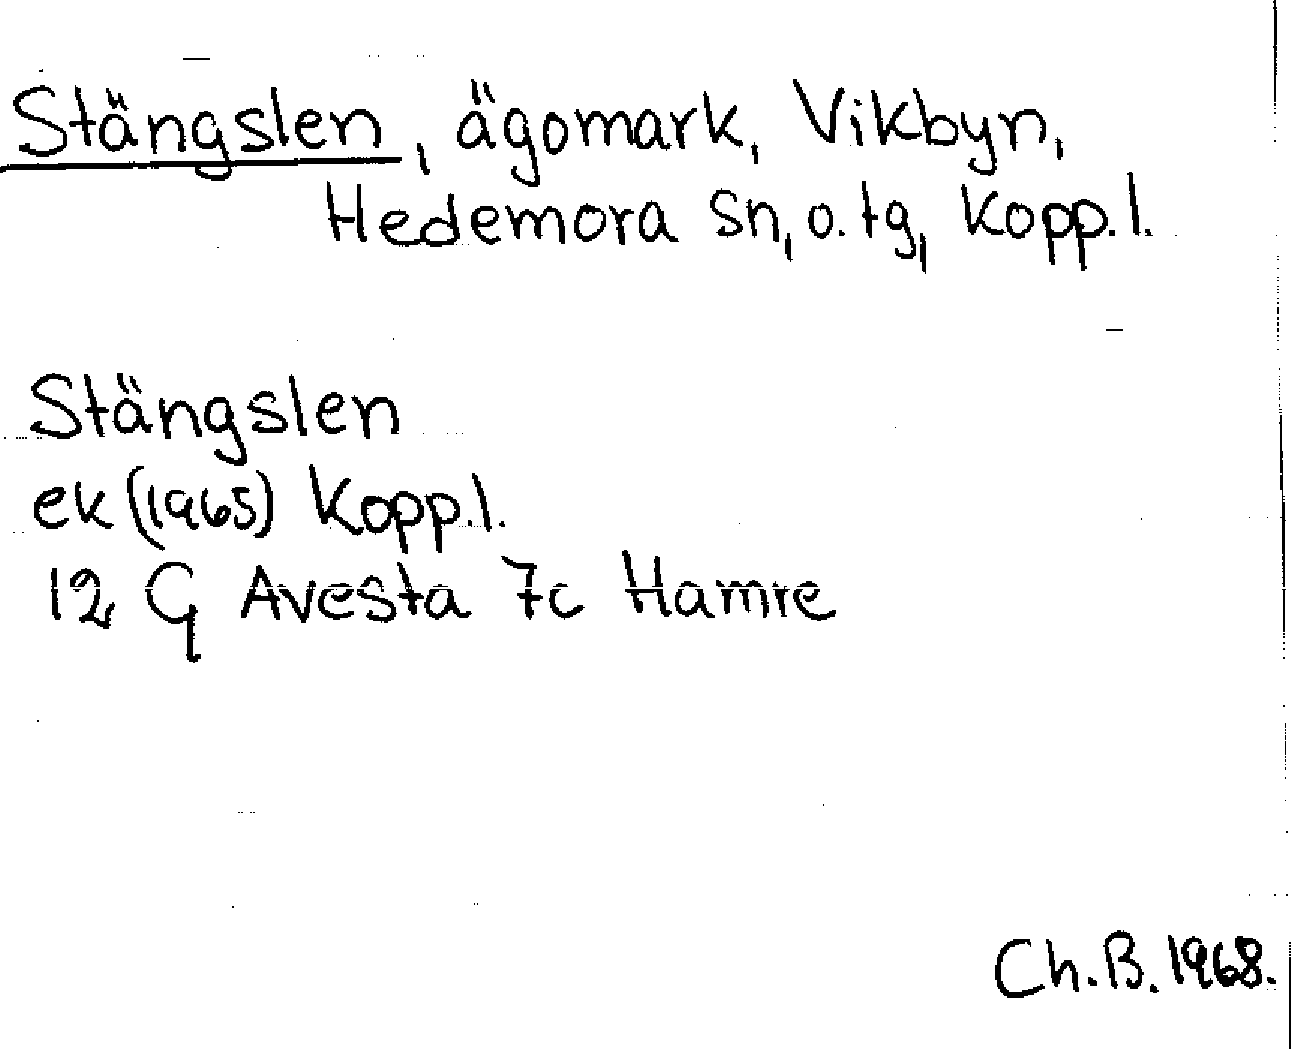 Stängslen, ägomark, Vikbyn,
Hedemora sn, o. tg, Kopp. l.
Stängslen
ek (1965) Kopp. l.
12 G Avesta 7c Hamre
Ch. B. 1968.